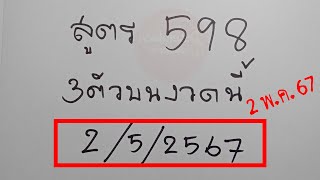 สูตร 598
3ตัวบนงวดนี้
2 พ.ค. 67
2/5/2567